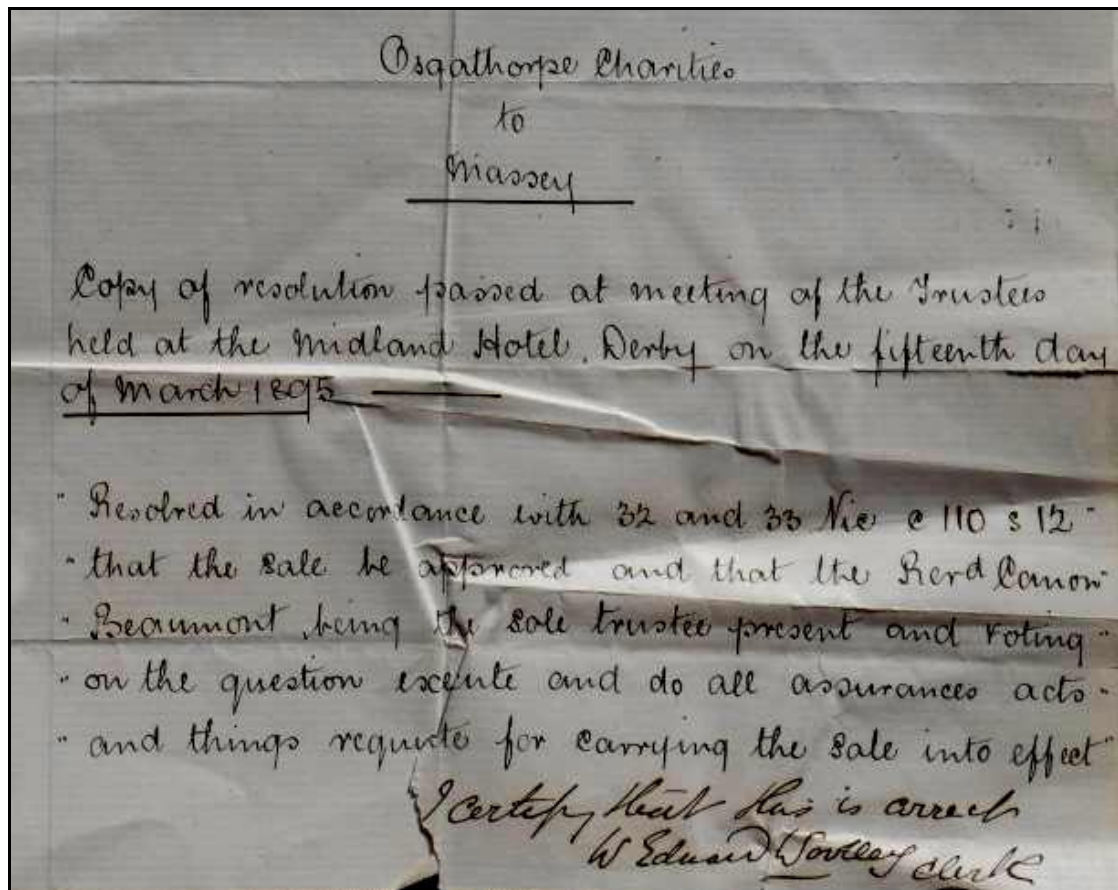 Osgathorpe Charities
to
Massey
Copy of resolution passed at meeting of the Trustees
held at the Midland Hotel, Derby on the fifteenth day
of March 1895
" Resolved in accordance with 32 and 33 Vic c 110 s 12 "
" that the sale be approved and that the Revd Canon "
" Beaumont being the sole trustee present and voting "
" on the question execute and do all assurances acts "
" and things requisite for carrying the sale into effect "
I certify that this is correct
W Edward clerk